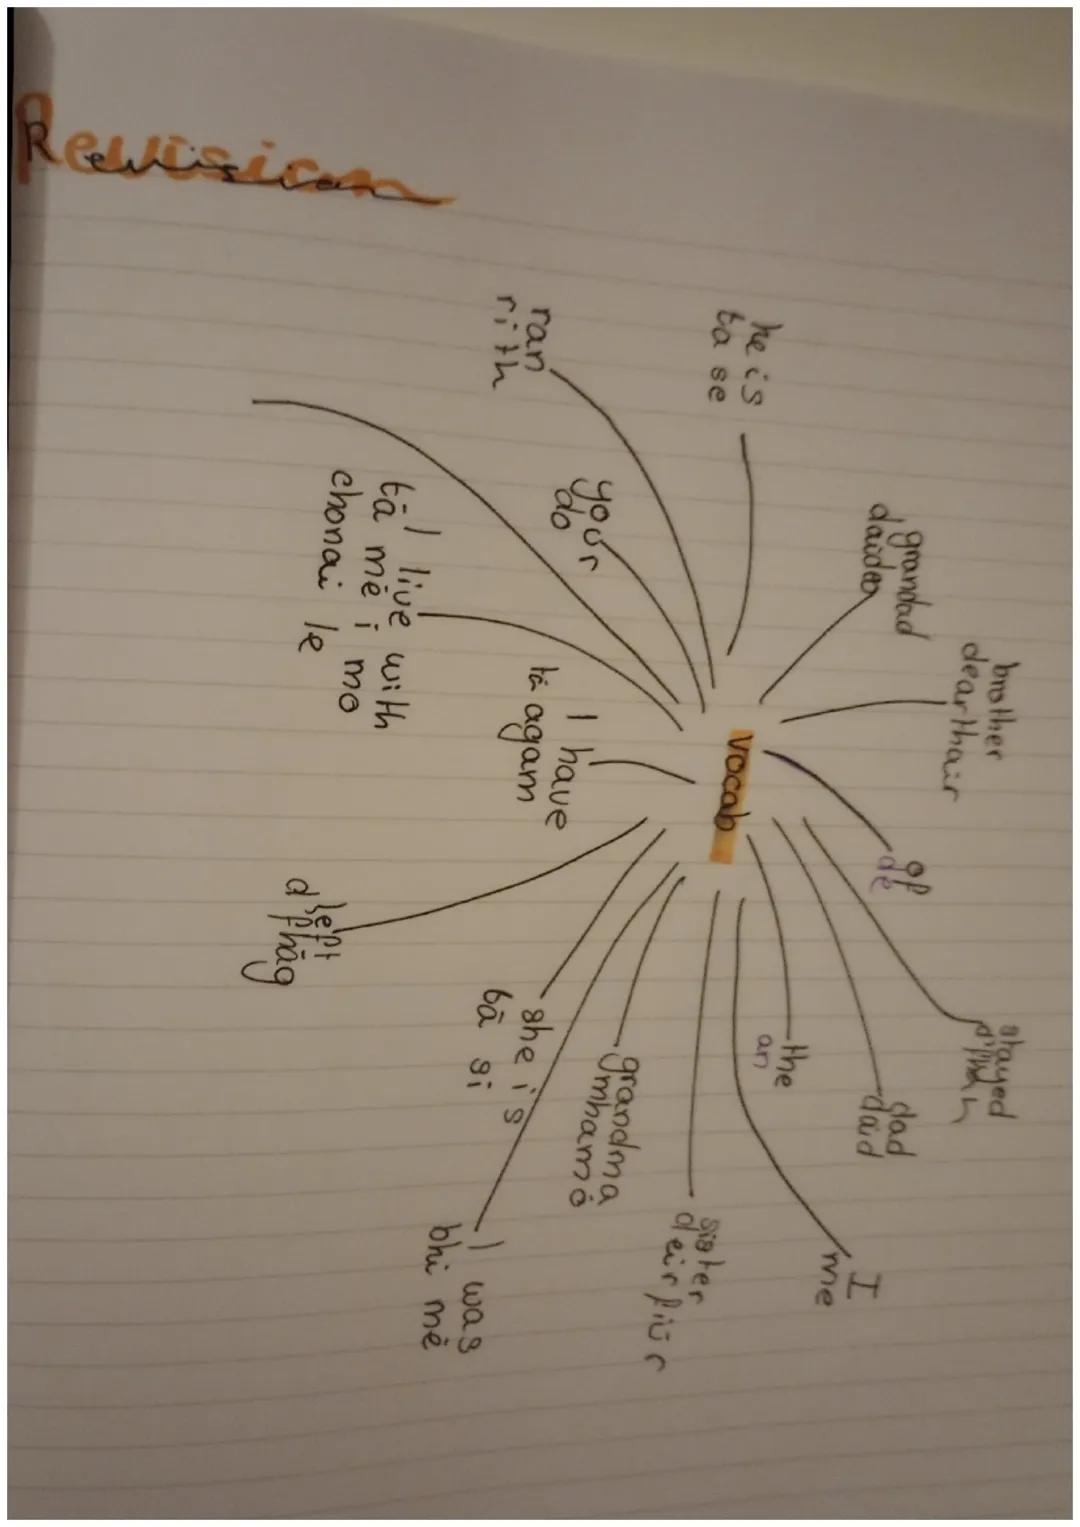 Revision
vocab
he is
ta se
grandad
daideo
brother
dearthair
of
de
stayed
dad
daid
the
an
I
me
sister
deirfiúr
grandma
mhamó
I was
bhí mé
she is
tá sí
left
d'fhág
I have
tá agam
I live with
tá mé i mo
chonai le
your
do
ran
rith